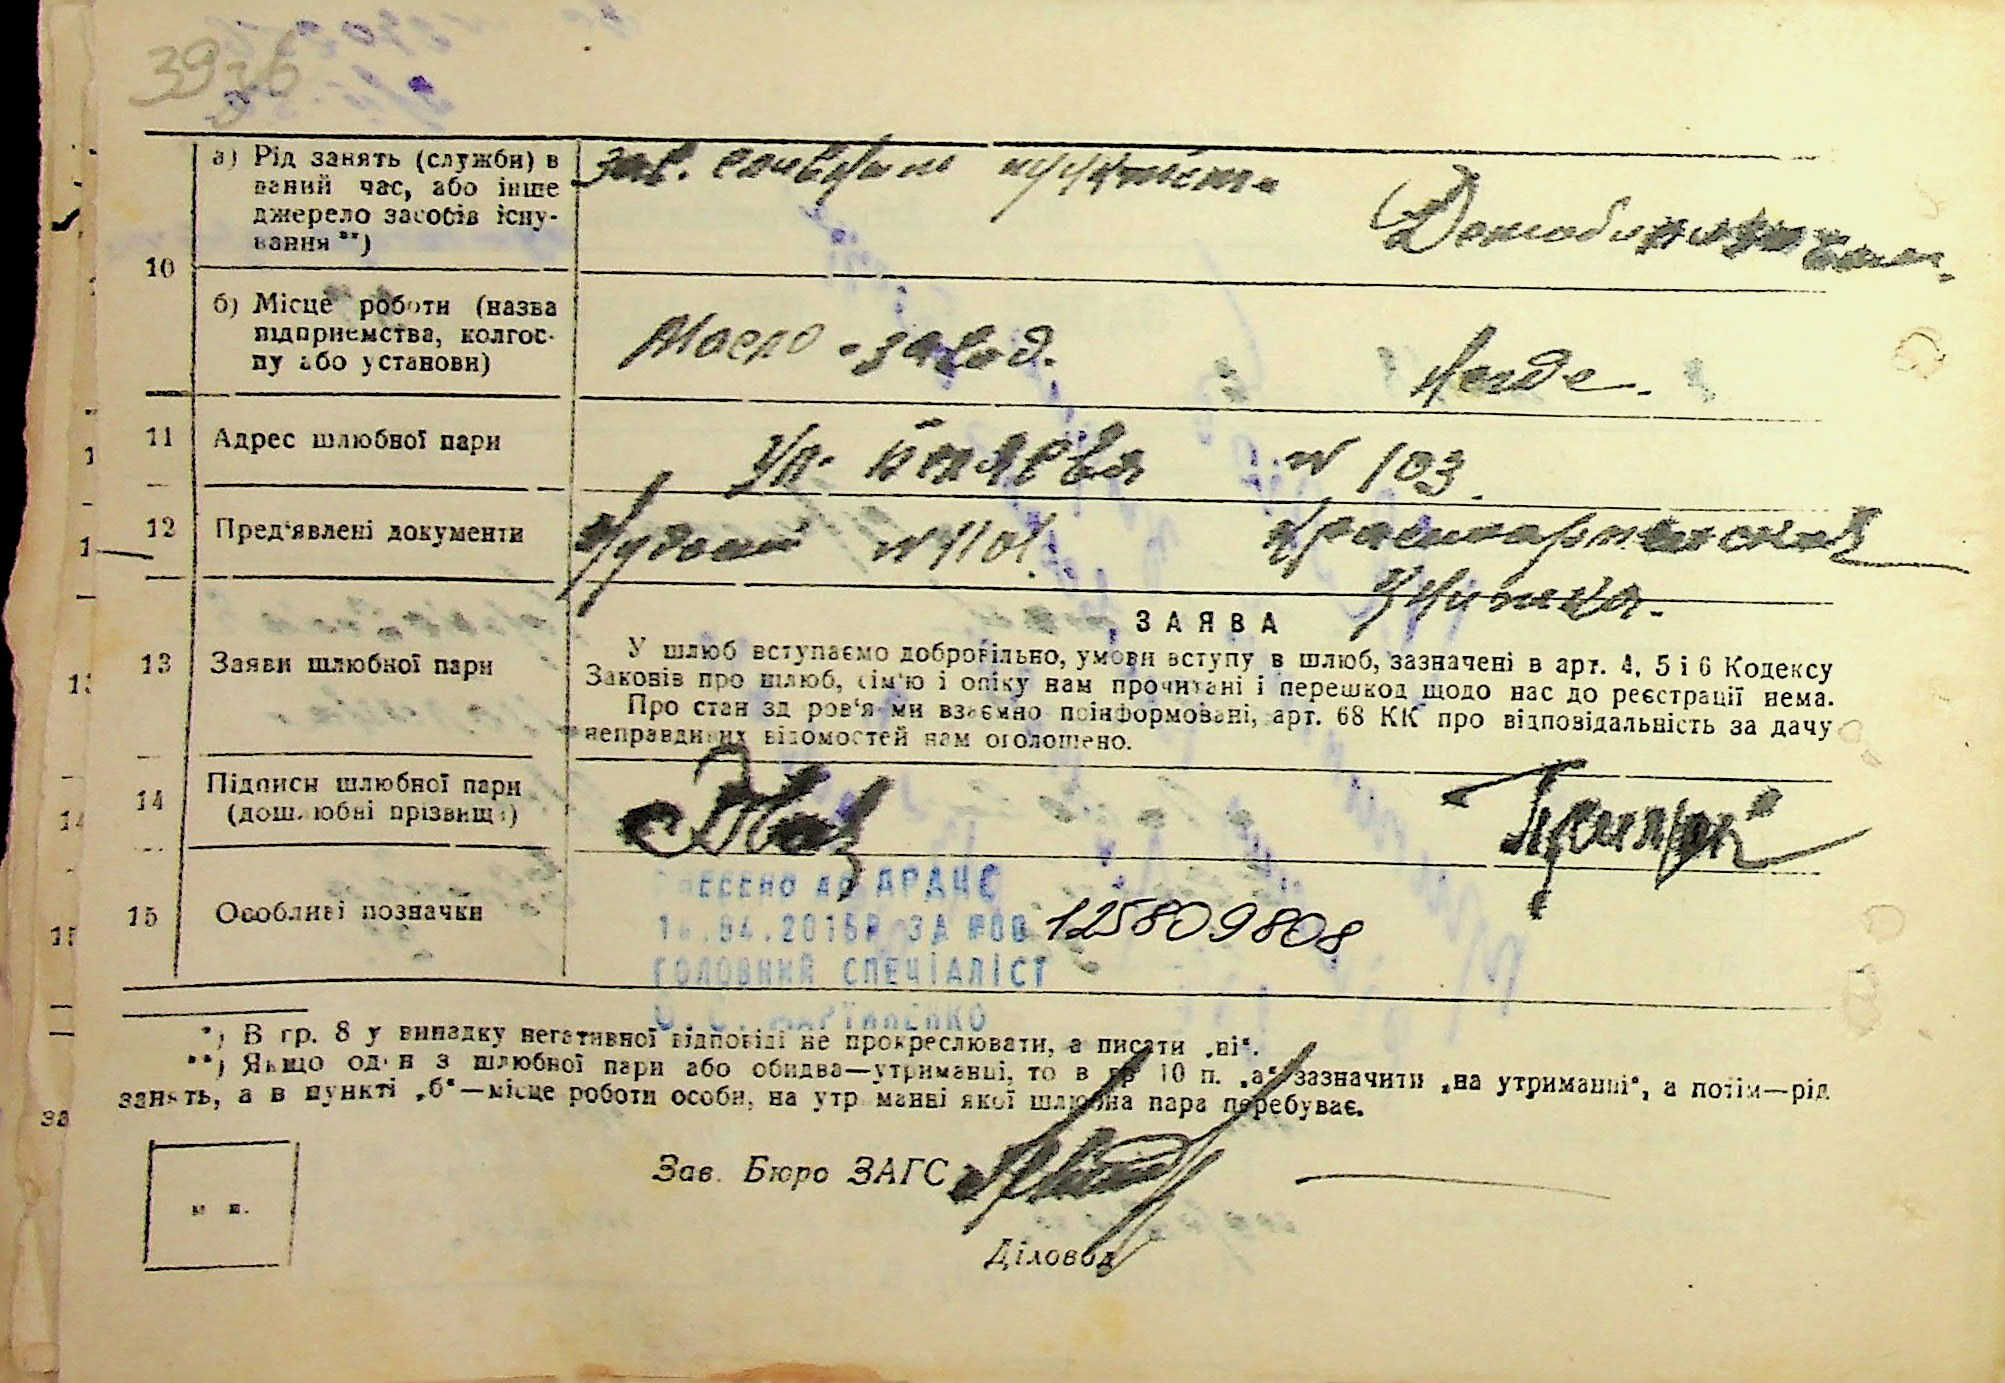 а) Рід занять (служби) в
даний час, або інше
джерело засобів існу-
вання **)
зав.
10
б) Місце роботи (назва
підприємства, колгос-
пу або установи)
Масло-завод.
11
Адрес шлюбної пари
ул. № 103.
12
Пред'явлені документи
№ 1101.
ЗАЯВА
13
Заяви шлюбної пари
У шлюб вступаємо добровільно, умови вступу в шлюб, зазначені в арт. 4, 5 і 6 Кодексу
Законів про шлюб, сім'ю і опіку нам прочитані і перешкод щодо нас до реєстрації нема.
Про стан здоров'я ми взаємно поінформовані, арт. 68 КК про відповідальність за дачу
неправдивих відомостей нам оголошено.
14
Підписи шлюбної пари
(дошлюбні прізвища)
15
Особливі позначки
ВНЕСЕНО ДО ДРАЦС
.04.2015Р ЗА №00 125809808
ГОЛОВНИЙ СПЕЦІАЛІСТ
О.С. МАРТИНЕНКО
*) В гр. 8 у випадку негативної відповіді не прокреслювати, а писати „ні“.
**) Якщо один з шлюбної пари або обидва—утриманці, то в гр 10 п. „а“ зазначити „на утриманні“, а потім—рід
занять, а в пункті „б“—місце роботи особи, на утриманні якої шлюбна пара перебуває.
Зав. Бюро ЗАГС
м п.
Діловод